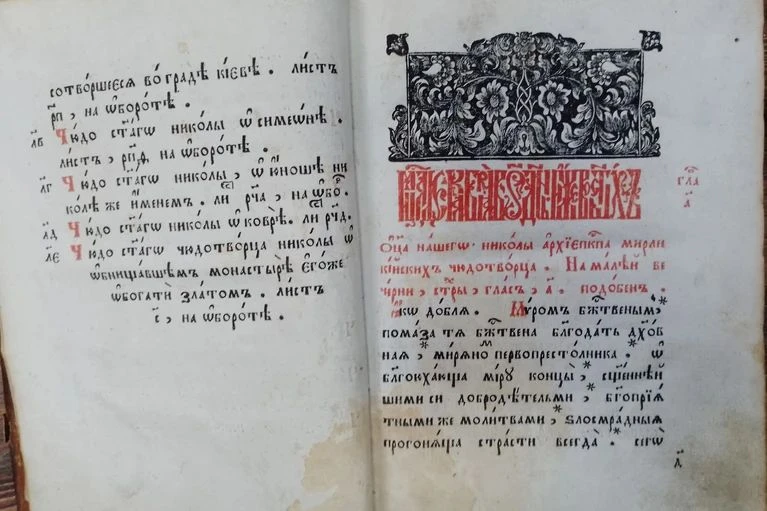 сотво́ршееся во́ градѣ кі́евѣ . ли́стъ
рп҃ , на ѡ҆боро́тѣ .
л҃в Чю́до ст҃а́гѡ нико́лы ѡ҆ симео́нѣ .
ли́стъ , рп҃д , на ѡ҆боро́тѣ .
л҃г Чю́до ст҃а́гѡ нико́лы , ѡ҆ ю҆́ношѣ ни
ко́лѣ же и҆́менемъ . лиⷭ , рч҃а , на ѡ҆боⷬ .
л҃д Чю́до ст҃а́гѡ нико́лы ѡ҆ коврѣ̀ . лиⷭ рч҃д .
л҃е Чю́до ст҃а́гѡ чюдотво́рца нико́лы ѡ҆
ѡ҆бнища́вшемъ монастырѣ̀ є҆го́же
ѡ҆богатѝ зла́томъ . ли́стъ
с҃ , на ѡ҆боро́тѣ .
гла
а҃
Ѻ҆ц҃а̀ на́шегѡ нико́лы а҆рхїепⷭкпа мирли
кі́йскихъ чюдотво́рца . На ма́лѣй ве
че́рни , стⷯры , гла́съ , а҃ . подо́бенъ .
Ꙗ҆́кѡ до́блѧ . Мѵ́ромъ бжⷭ҇твенымъ *
пома́за тѧ бжⷭ҇твена благода́ть дх҃о́в
наѧ , мирѧ́номъ первопресто́лника . ѡ҆
бл҃гоюха́юща мі́ру концы̀ , * сщ҃е́ннѣй
шими си доброде́тельми , * бл҃гопрїѧ́
тными же моли́твами , * ѕлосмра́дныѧ
прогонѧ́ѧ стра́сти всегда̀ . сегѡ̀
д҃